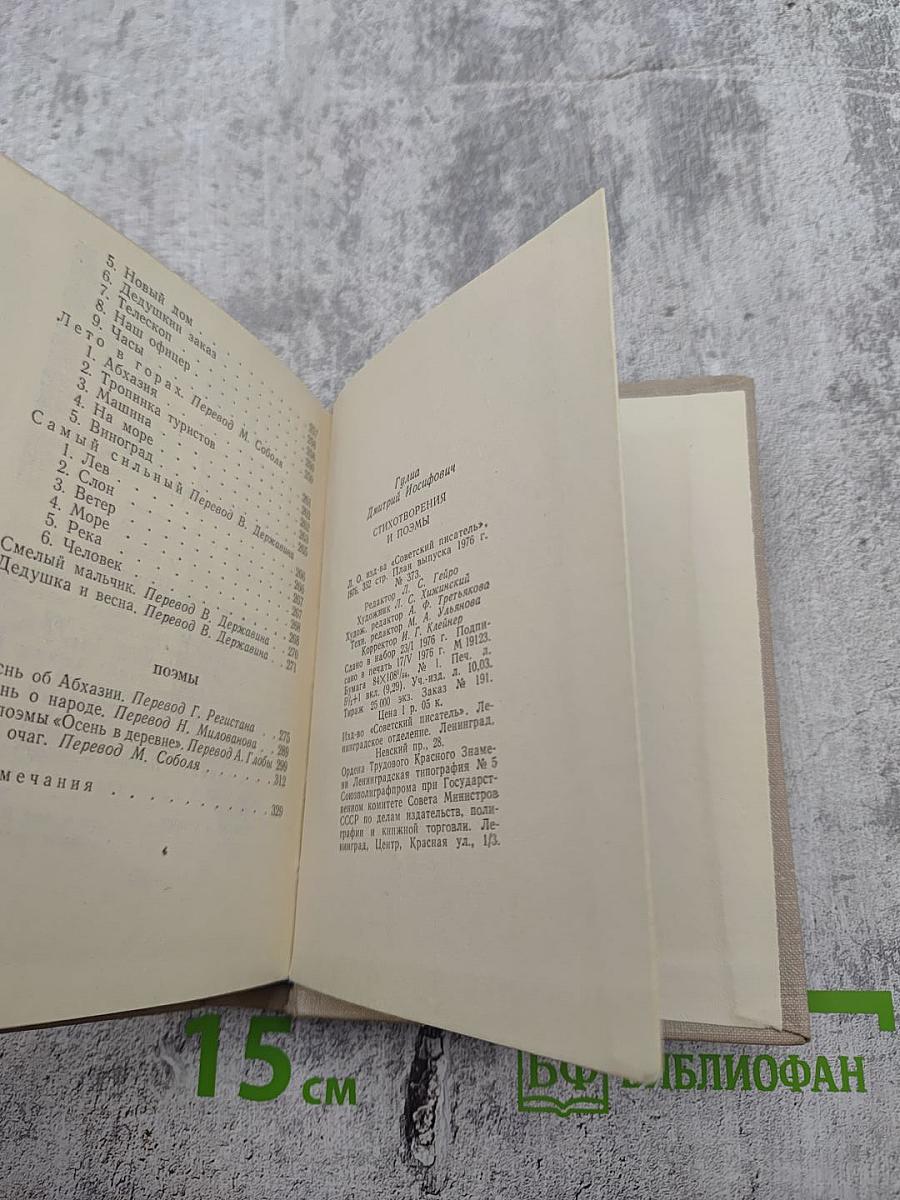 5. Новый дом . . . . . . . .
6. Дедушкин заказ . . . . . .
7. Телескоп . . . . . . . .
8. Наш офицер . . . . . . .
9. Часы . . . . . . . . .
Лето в горах. Перевод М. Соболя
1. Абхазия . . . . . . . .
2. Тропинка туристов . . . . .
3. Машина . . . . . . . .
4. На море . . . . . . . .
5. Виноград . . . . . . . .
Самый сильный Перевод В. Державина
1. Лев . . . . . . . . .
2. Слон . . . . . . . . . 266
3. Ветер . . . . . . . . . 266
4. Море . . . . . . . . . 267
5. Река . . . . . . . . . 267
6. Человек . . . . . . . . 268
Смелый мальчик. Перевод В. Державина 270
Дедушка и весна. Перевод В. Державина . 271
ПОЭМЫ
снь об Абхазии. Перевод Г. Регистана . . 275
нь о народе. Перевод Н. Милованова . . 289
поэмы «Осень в деревне». Перевод А. Глобы 299
очаг. Перевод М. Соболя . . . . . 312
мечания . . . . . . . . . 329
Гулиа
Дмитрий Иосифович
СТИХОТВОРЕНИЯ
И ПОЭМЫ
Л. О. изд-ва «Советский писатель»,
1976. 332 стр. План выпуска 1976 г.
№ 373.
Редактор Л. С. Гейро
Художник Л. С. Хижинский
Худож. редактор А. Ф. Третьякова
Техн. редактор М. А. Ульянова
Корректор И. Г. Клейнер
Сдано в набор 23/I 1976 г. Подпи-
сано в печать 17/V 1976 г. М 19123.
Бумага 84×108¹/₆₄, № 1. Печ. л.
+1 вкл. (9,29). Уч.-изд. л. 10,03.
Тираж 25 000 экз. Заказ № 191.
Цена 1 р. 05 к.
Изд-во «Советский писатель». Ле-
нинградское отделение. Ленинград,
Невский пр., 28.
Ордена Трудового Красного Знаме-
ни Ленинградская типография № 5
Союзполиграфпрома при Государст-
венном комитете Совета Министров
СССР по делам издательств, поли-
графии и книжной торговли. Ле-
нинград, Центр, Красная ул., 1/3.
15 см
БФ БИБЛИОФАН